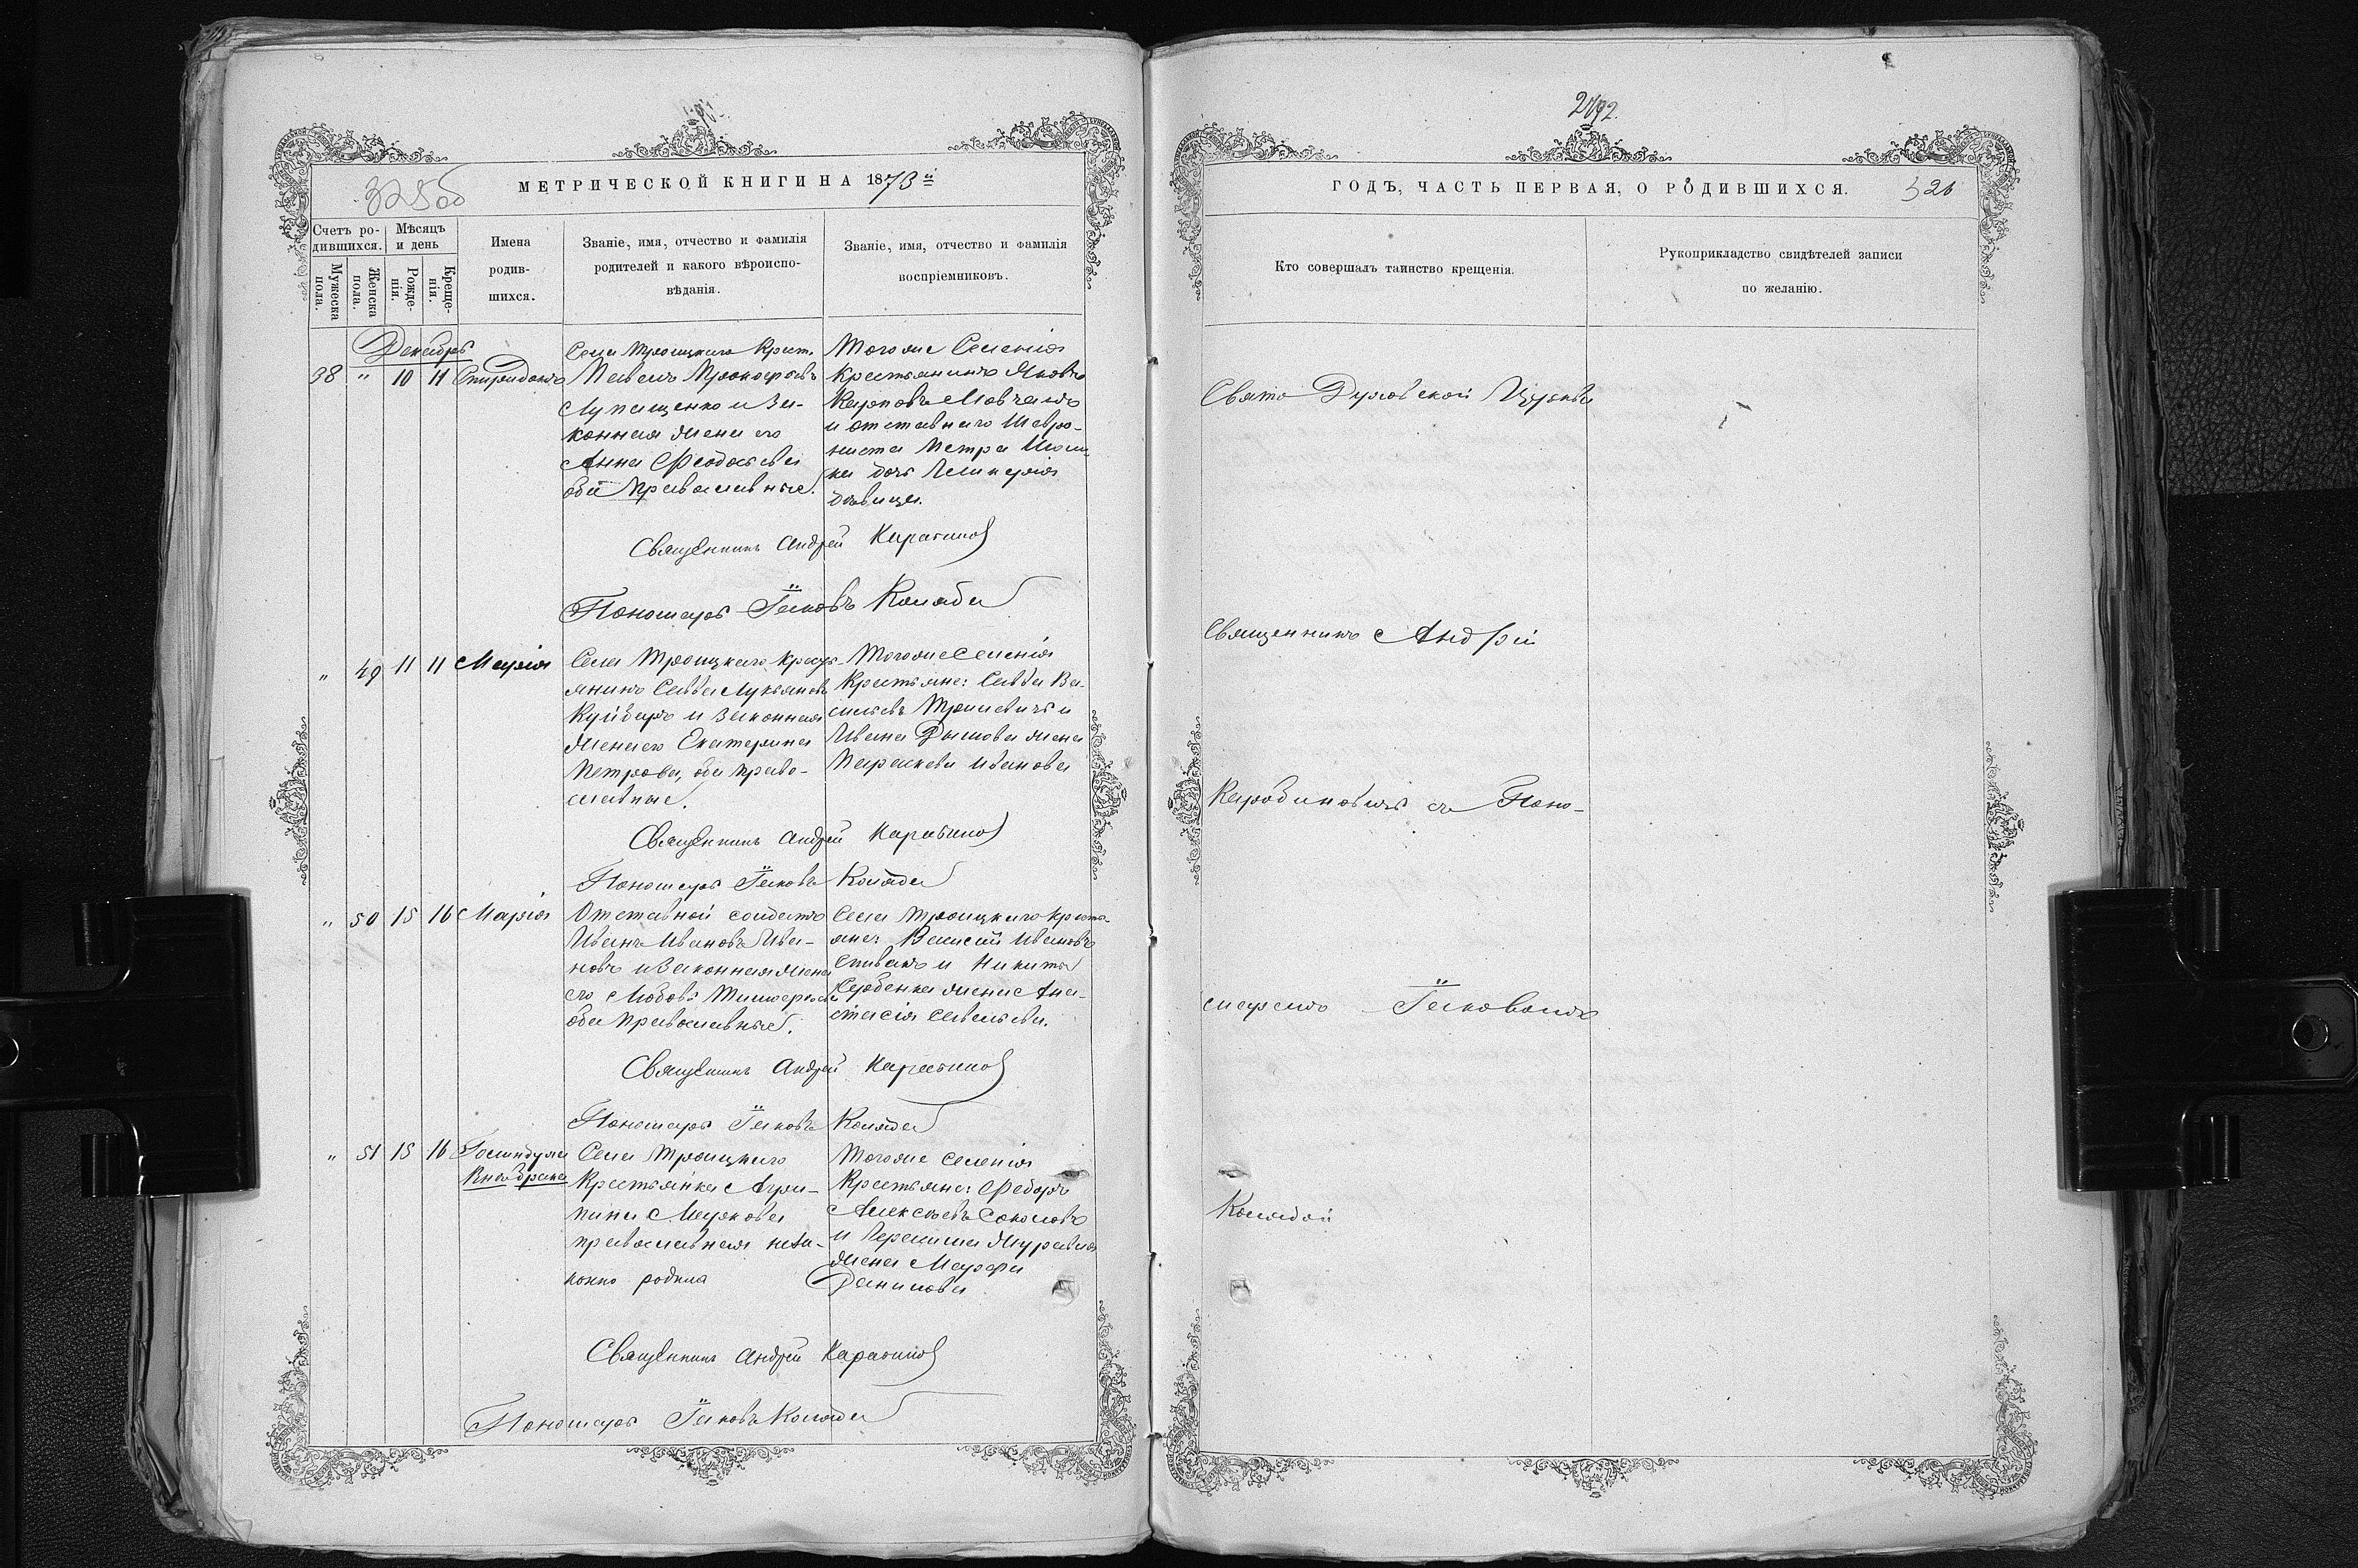 325об
МЕТРИЧЕСКОЙ КНИГИ НА 1873й
Счетъ ро-
дившихся.
Мѣсяцъ
и день
Мужеска
пола.
Женска
пола.
Рожде-
нія.
Креще-
нія.
Имена
родив-
шихся.
Званіе, имя, отчество и фамилія
родителей и какого вѣроиспо-
вѣданія.
Званіе, имя, отчество и фамилія
воспріемниковъ.
Декабрь
38 " 10 11 Спиридонъ
Села Троицкаго Крест.
Павелъ Прокофьевъ
Лупащенко и За-
конная жена его
Анна Феодосьева
оба православные.
Тогоже Селенія
Крестьянинъ Яковъ
Карповъ Мовчанъ
и отставнаго
Петра
дочь
дѣвица.
Священникъ Андрей
Пономарь Іаковъ Коляда
" 49 11 11 Марія
Села Троицкаго Кресть-
янинъ Савва Лукьяновъ
и Законная
жена его Екатерина
Петрова, оба право-
славные.
Тогоже Селенія
Крестьяне: Савва Ва-
сильевъ и
Ивана жена
Параскева Иванова
Священникъ Андрей
Пономарь Іаковъ Коляда
" 50 15 16 Марія
Отставной солдатъ
Иванъ Ивановъ Ива-
новъ и Законная жена
его Любовь Тимофеева
оба православные.
Села Троицкаго Кресть-
яне: Василій Ивановъ
Спивакъ и Никиты
жена Ана-
стасія Савельева.
Священникъ Андрей
Пономарь Іаковъ Коляда
" 51 15 16
Села Троицкаго
Крестьянка Агри-
пина Маркова
православная неза-
конно родила
Тогоже селенія
Крестьяне: Федоръ
Алексѣевъ Соколовъ
и Герасима Журавля
жена Марфа
Данилова
Священникъ Андрей
Пономарь Іаковъ Коляда
2892.
ГОДЪ, ЧАСТЬ ПЕРВАЯ, О РОДИВШИХСЯ.
326
Кто совершалъ таинство крещенія.
Рукоприкладство свидѣтелей записи
по желанію.
Свято Духовской Церкви
Священникъ Андрей
съ Поно-
маремъ Іаковомъ
Колядой